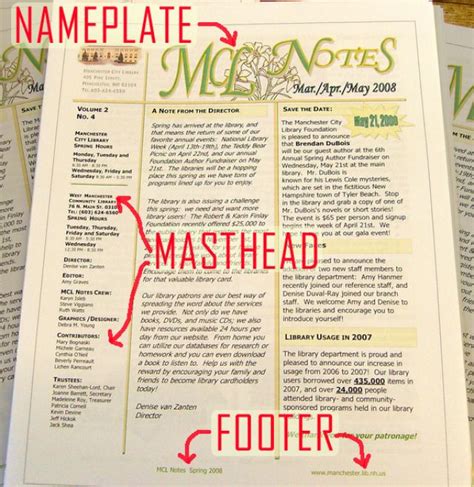 NAMEPLATE
MCL NOTES
Mar./Apr./May 2008
MANCHESTER CITY LIBRARY
405 PINE STREET
VOLUME 2
NO. 4
MANCHESTER
CITY LIBRARY
SPRING HOURS
Monday, Tuesday and
Thursday
Wednesday, Friday
and Saturday
WEST MANCHESTER
COMMUNITY LIBRARY
76 N. MAIN ST.
TEL: (603) 624-6560
SPRING HOURS
Tuesday, Thursday,
Friday and Saturday
Wednesday
DIRECTOR:
Denise van Zanten
EDITOR:
Amy Graves
MCL NOTES CREW:
Karen Isleb
Steve Viggiano
Ruth Watts
GRAPHICS/DESIGNER:
Debra M. Young
CONTRIBUTORS:
Mary Bognaski
Michele Garneau
Cynthia O'Neil
Beverly Perreault
Lichen Rancourt
TRUSTEES:
Karen Sheehan-Lord, Chair
Joanne Barrett, Secretary
Madeleine Roy, Treasurer
Patricia Cornell
Kevin Devine
Jeff Hickok
Jack Shea
A NOTE FROM THE DIRECTOR
Spring has arrived at the library, and
that means the return of some of our
favorite annual events! National Library
Week (April 13th-19th), the Teddy Bear
Picnic on April 22nd, and our annual
Foundation Author Fundraiser on May
21st. The libraries will be a hopping
place this spring as we have tons of
programs lined up for you to enjoy.
The library is also issuing a challenge
this spring: we need and want more
library users! The Robert & Karin Finlay
Foundation
Encourage them to come to the libraries
for that valuable library card.
Our library patrons are our best way of
spreading the word about the services
we provide. Not only do we have
books, DVDs, and music CDs; we also
have resources available 24 hours per
day from our website. From home you
can utilize our databases for research or
homework and you can even download
a book to listen to. Help us with the
reward by encouraging your family and
friends to become library cardholders
today!
Denise van Zanten
Director
SAVE THE DATE:
May 21, 2008
The Manchester City
Library Foundation
is pleased to announce
that Brendan DuBois
will be our guest author at the 6th
Annual Spring Author Fundraiser on
Wednesday, May 21st at the main
library. Mr. DuBois is
known for his Lewis Cole mysteries,
which are set in the fictitious New
Hampshire town of Tyler Beach. Stop
by the library and grab a copy of one of
Mr. DuBois's novels or short stories!
The event is $65 per person and signup
begins the week of April 21st. We
hope to see you at our gala event!
New Faces
two new staff members to
the library department: Amy Hanmer
recently joined our reference staff, and
Denise Duval-Ray joined our branch
staff. We welcome Amy and Denise to
the library and encourage you to
introduce yourself!
LIBRARY USAGE IN 2007
The library department is proud and
pleased to announce our increase in
usage from 2006 to 2007! Our library
users borrowed over 435,000 items in
2007, and over 24,000 people
attended library- and community-
sponsored programs held in our library
for your patronage!
MASTHEAD
FOOTER
MCL Notes Spring 2008
www.manchester.lib.nh.us